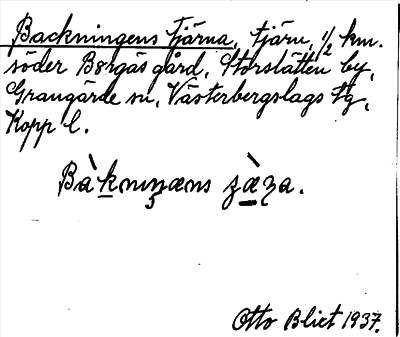 Backningens tjärna, tjärn, 1/2 km.
söder Bergås gård, Storslätten by,
Grangärde sn, Västerbergslags tg,
Kopp l.
Otto Blixt 1937.